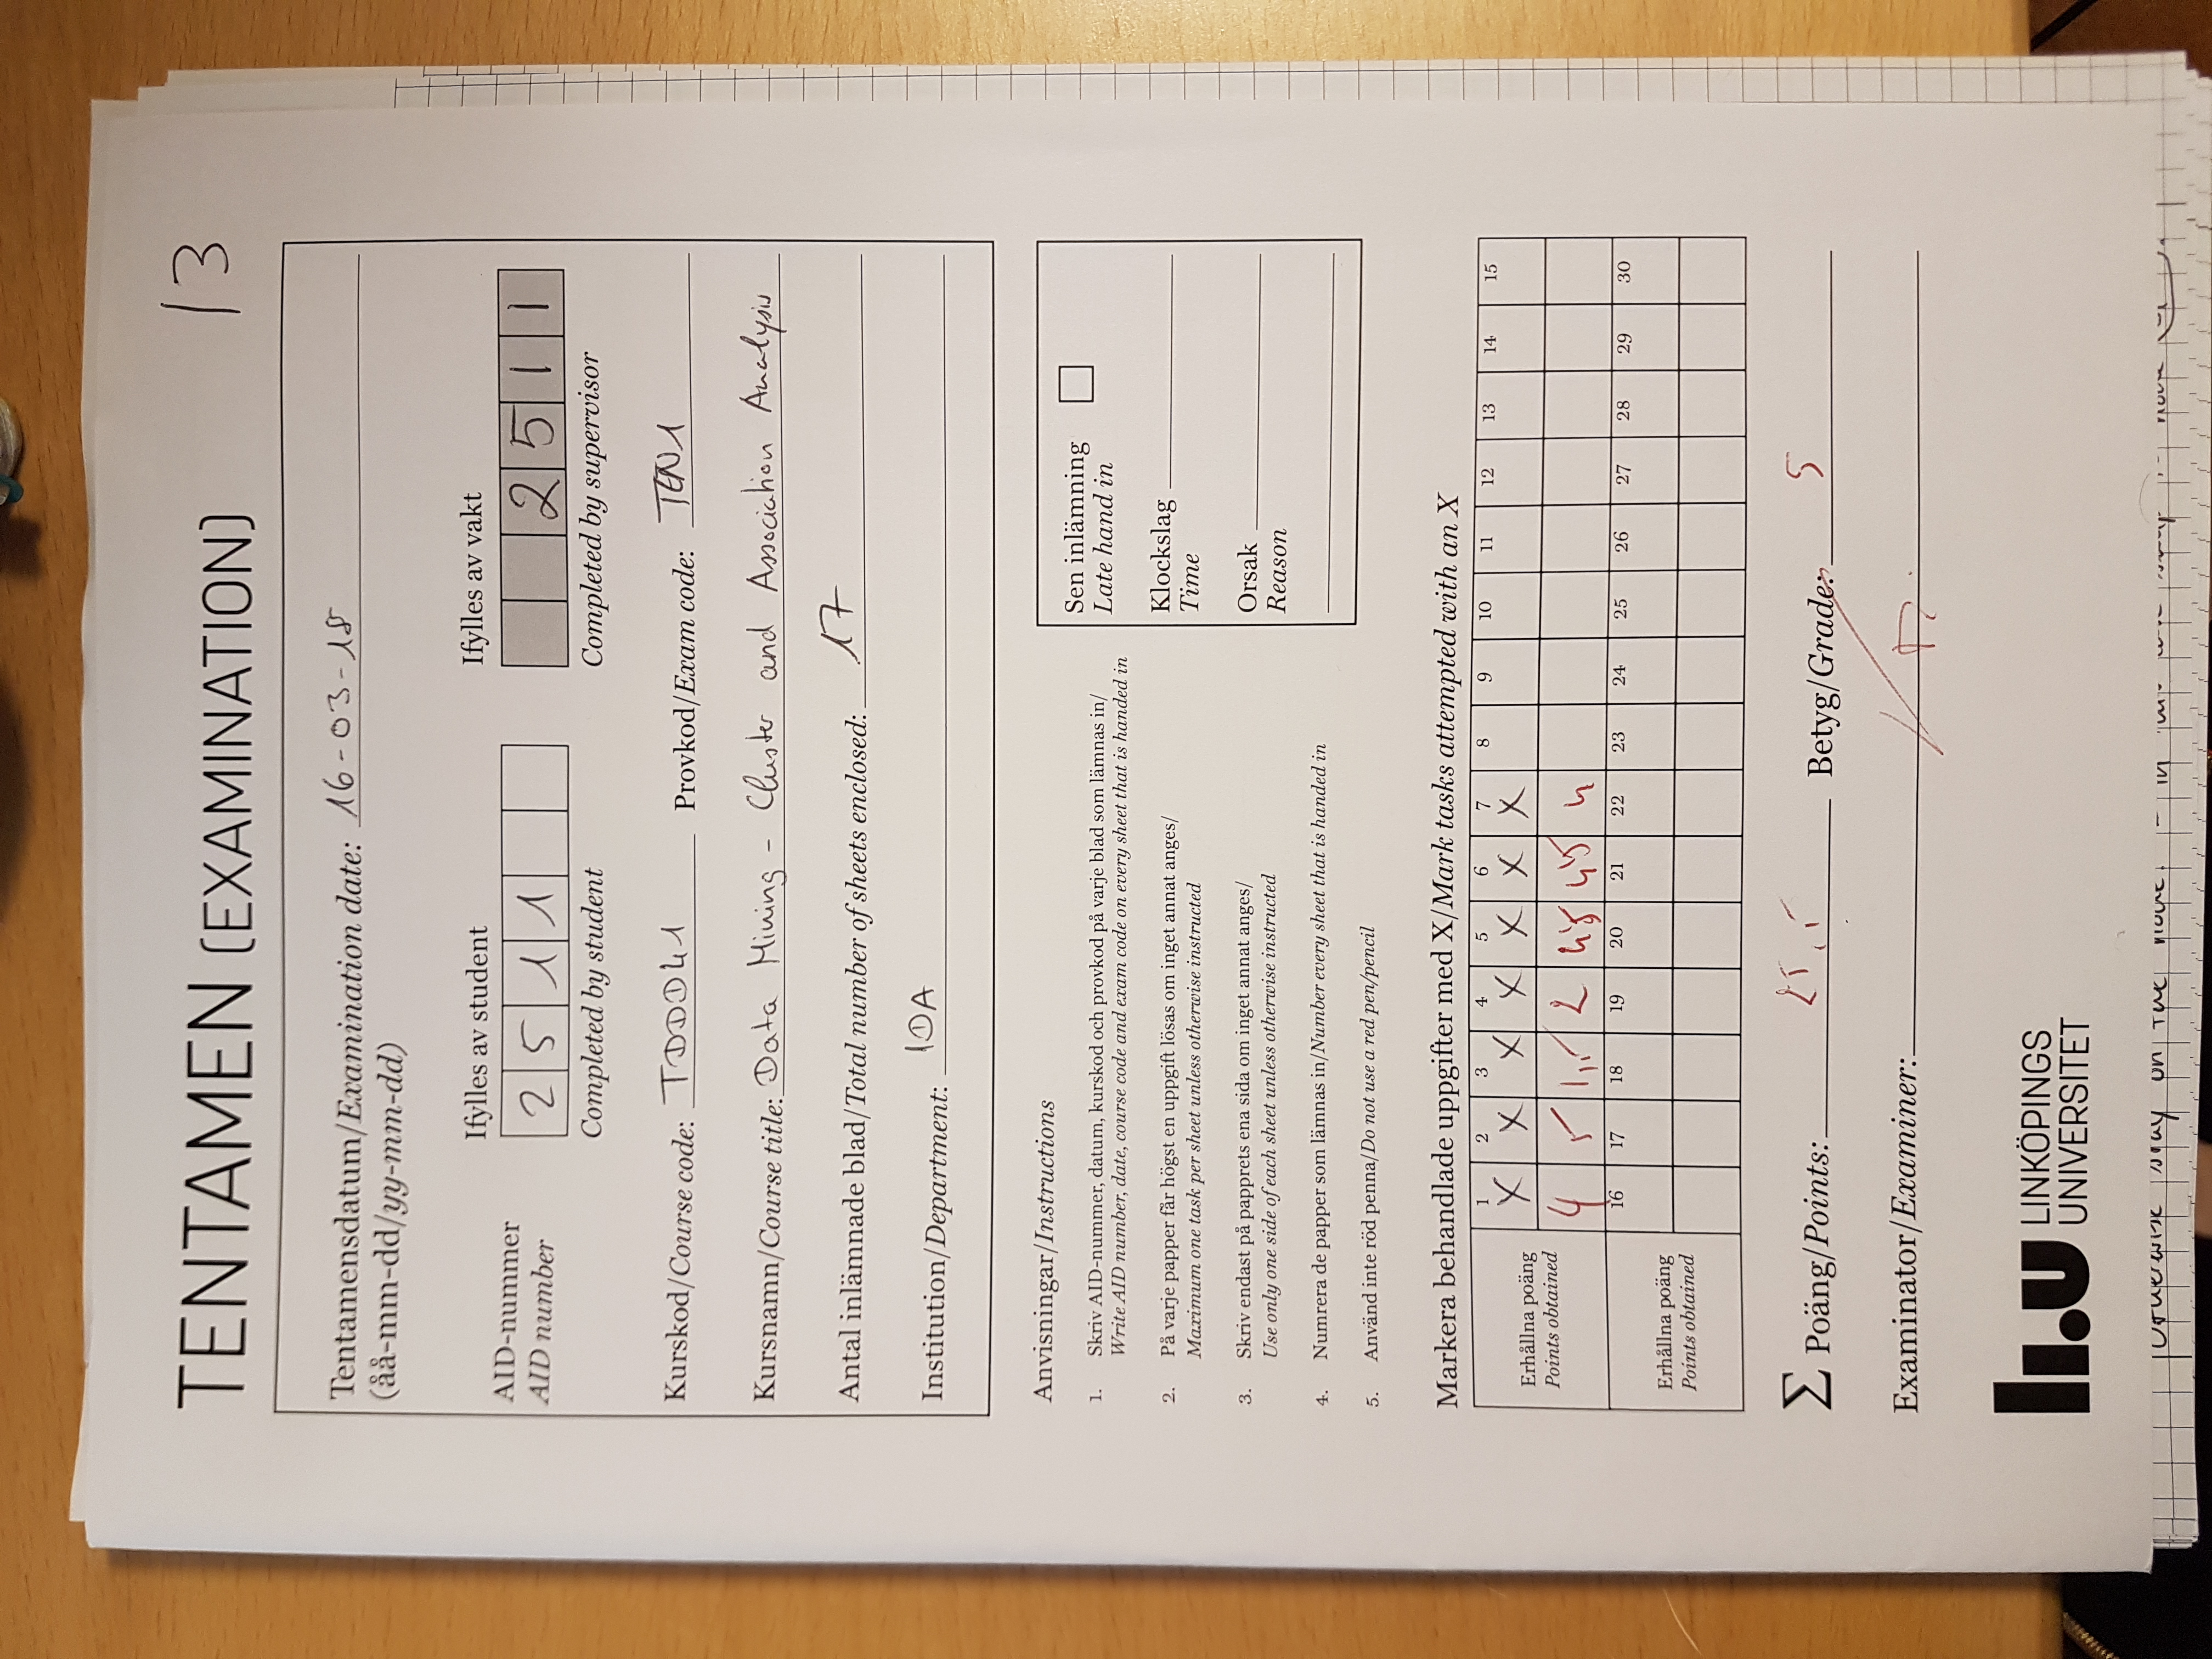 TENTAMEN (EXAMINATION) 13
Tentamensdatum/Examination date: 16-03-18
(åå-mm-dd/yy-mm-dd)
Ifylles av student Ifylles av vakt
AID-nummer
AID number
2 5 1 1 2 5 1 1
Completed by student Completed by supervisor
Kurskod/Course code: TDDD41 Provkod/Exam code: TEN1
Kursnamn/Course title: Data Mining - Cluster and Association Analysis
Antal inlämnade blad/Total number of sheets enclosed: 17
Institution/Department: IDA
Anvisningar/Instructions
1. Skriv AID-nummer, datum, kurskod och provkod på varje blad som lämnas in/
Write AID number, date, course code and exam code on every sheet that is handed in
2. På varje papper får högst en uppgift lösas om inget annat anges/
Maximum one task per sheet unless otherwise instructed
3. Skriv endast på papprets ena sida om inget annat anges/
Use only one side of each sheet unless otherwise instructed
4. Numrera de papper som lämnas in/Number every sheet that is handed in
5. Använd inte röd penna/Do not use a red pen/pencil
Sen inlämning
Late hand in
Klockslag
Time
Orsak
Reason
Markera behandlade uppgifter med X/Mark tasks attempted with an X
1 2 3 4 5 6 7 8 9 10 11 12 13 14 15
X X X X X X X
Erhållna poäng
Points obtained
4 5 1,5 2 4,5 4,5 4
16 17 18 19 20 21 22 23 24 25 26 27 28 29 30
Erhållna poäng
Points obtained
Σ Poäng/Points: 25,5 Betyg/Grade: 5
Examinator/Examiner:
li.u LINKÖPINGS
UNIVERSITET